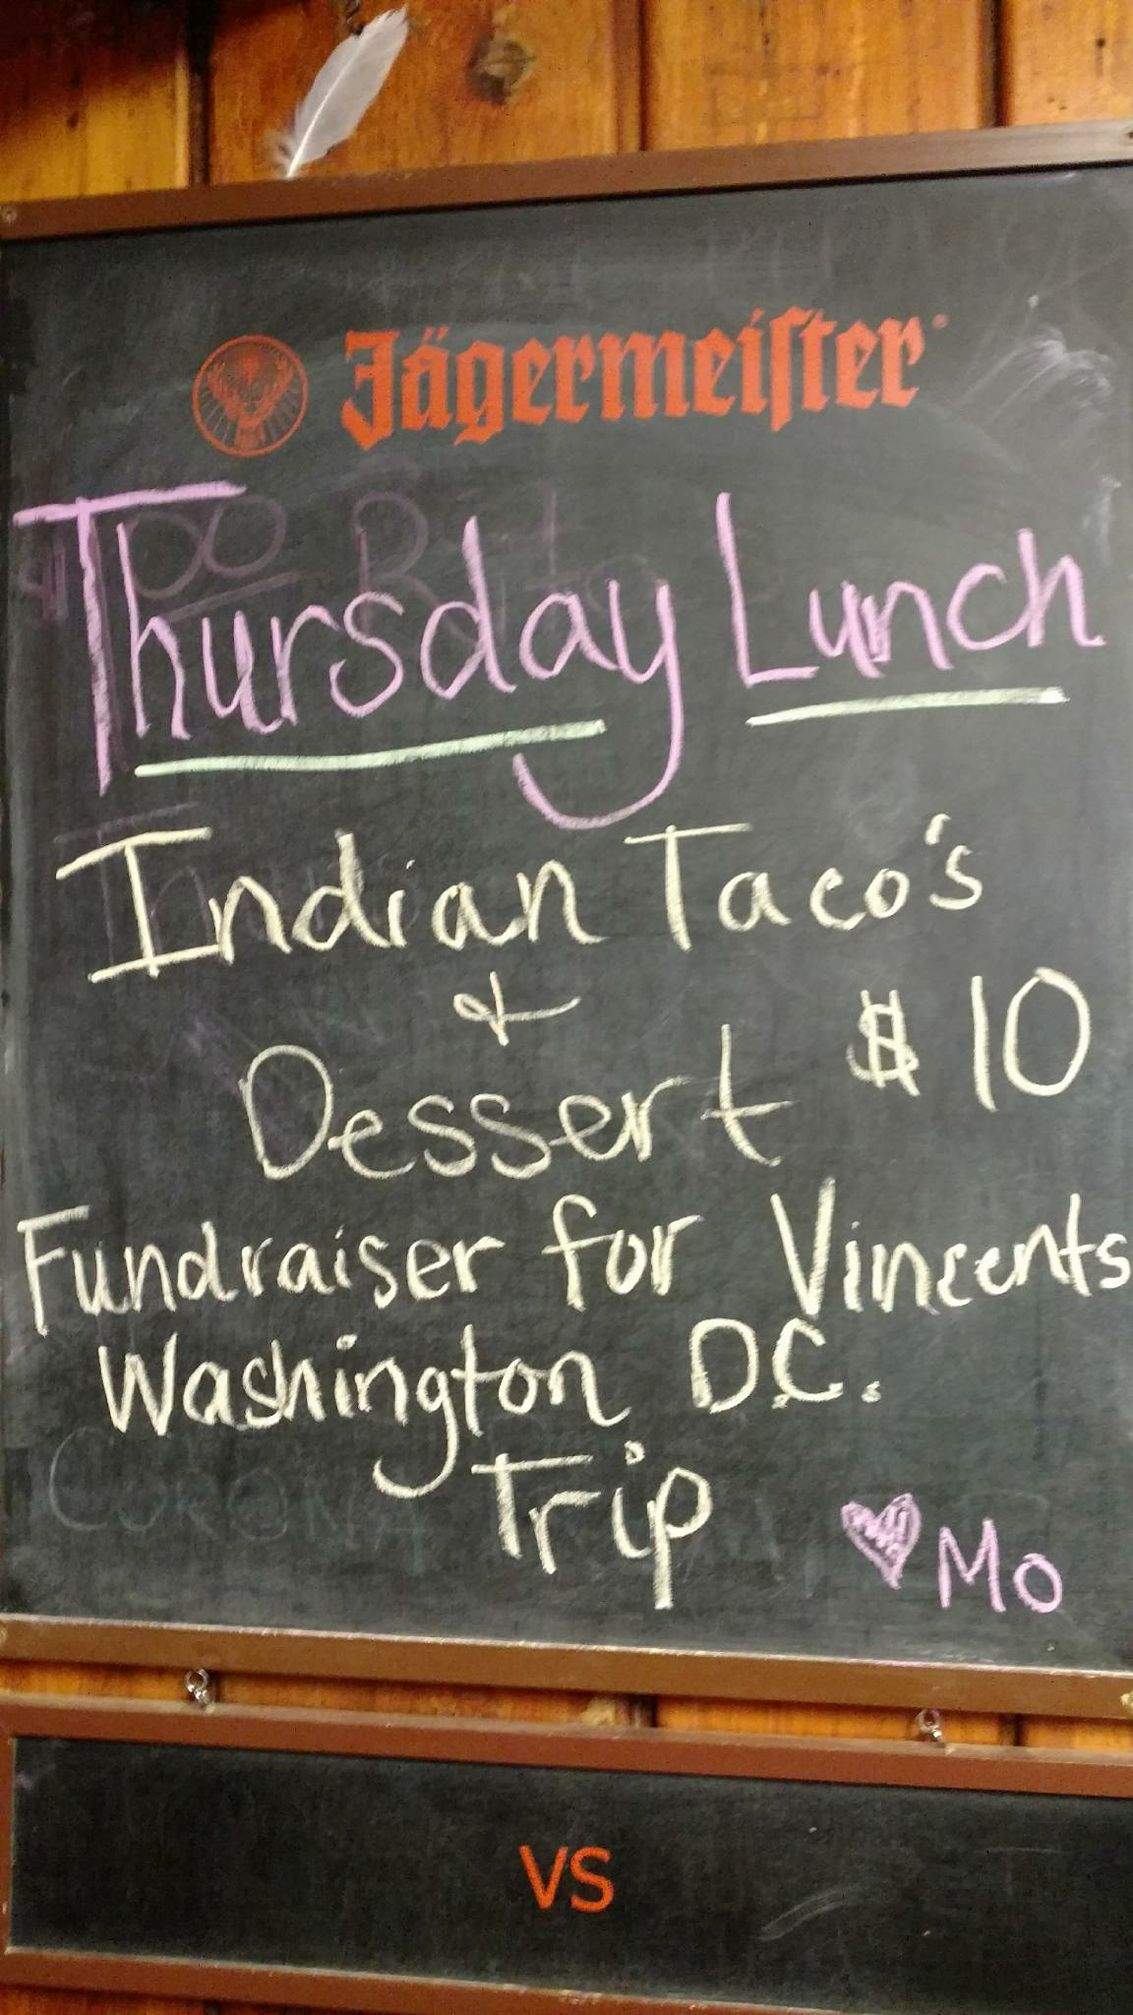 Jägermeiſter
Thursday Lunch
Indian Taco's
&
Dessert $10
Fundraiser for Vincents
Washington D.C.
Trip
Mo
VS